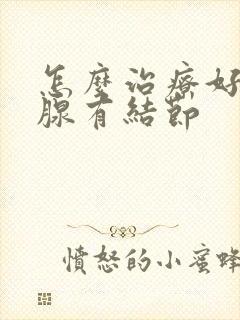 怎麼治療好
腺有結節
憤怒的小蜜蜂